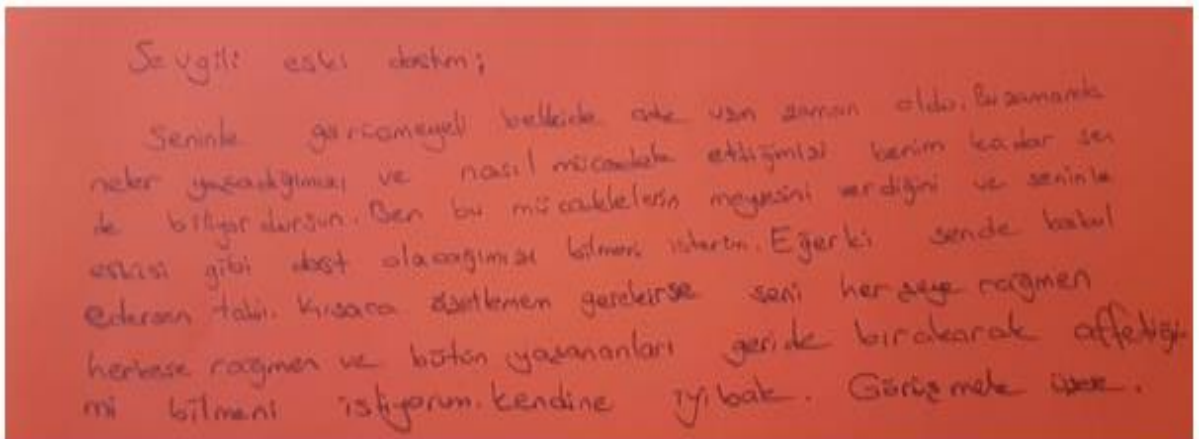 Sevgili eski dostum;
Seninle görüşmeyeli belkide çok uzun zaman oldu. Bu zamanda
neler yaşadığımızı ve nasıl mücadele ettiğimizi benim kadar sen
de biliyordursun. Ben bu mücadelelerin meyvesini verdiğini ve seninle
eskisi gibi dost olacağımızı bilmeni isterim. Eğerki sende kabul
edersen tabi. Kısaca özetlemem gerekirse seni her şeye rağmen
herkese rağmen ve bütün yaşananları geride bırakarak affettiği-
mi bilmeni istiyorum. Kendine iyibak. Görüşmek üzere.